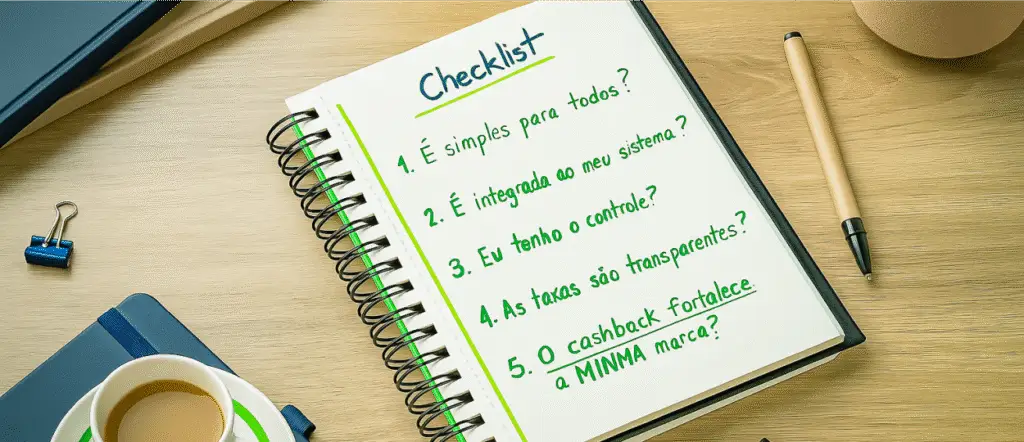 Checklist
1. É simples para todos?
2. É integrada ao meu sistema?
3. Eu tenho o controle?
4. As taxas são transparentes?
5. O cashback fortalece
a MINMA marca?